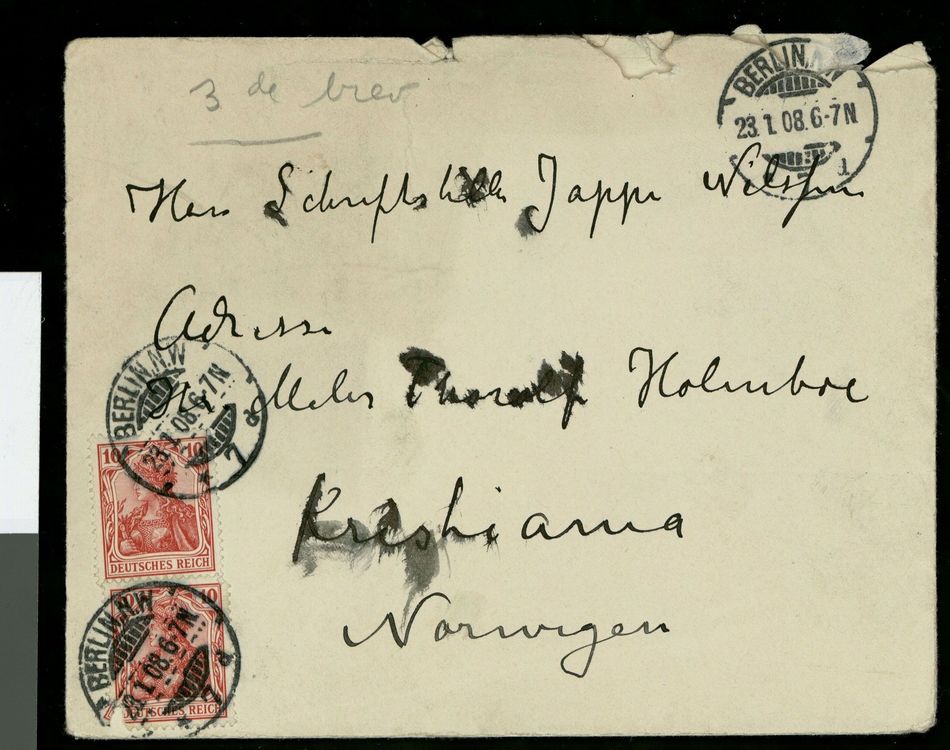 3 de brev
BERLIN.N.W
23.1.08.6-7N
Herr Schriftsteller Jappe Nilssen
Adresse
Hr Maler Thorolf Holmboe
Kristiania
Norwegen
BERLIN.N.W
23.1.08.6-7N
7 a
10 10
DEUTSCHES REICH
BERLIN.N.W
23.1.08.6-7N
7 a
10
DEUTSCHES REICH